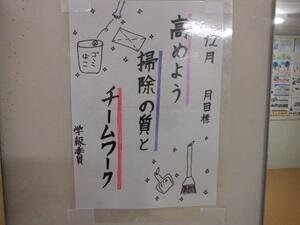 12月 月目標
高めよう
掃除の質と
チームワーク
学級委員
ゴミ
ばこ